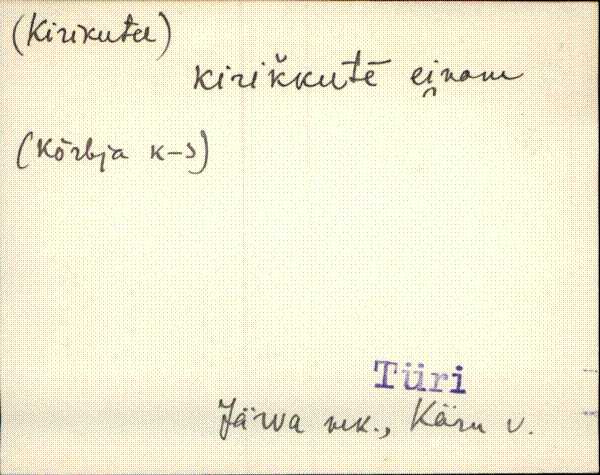 (Kirikutee)
kirikkutē einam
(Kõrbja k-s)
Türi
Järva mk., Käru v.